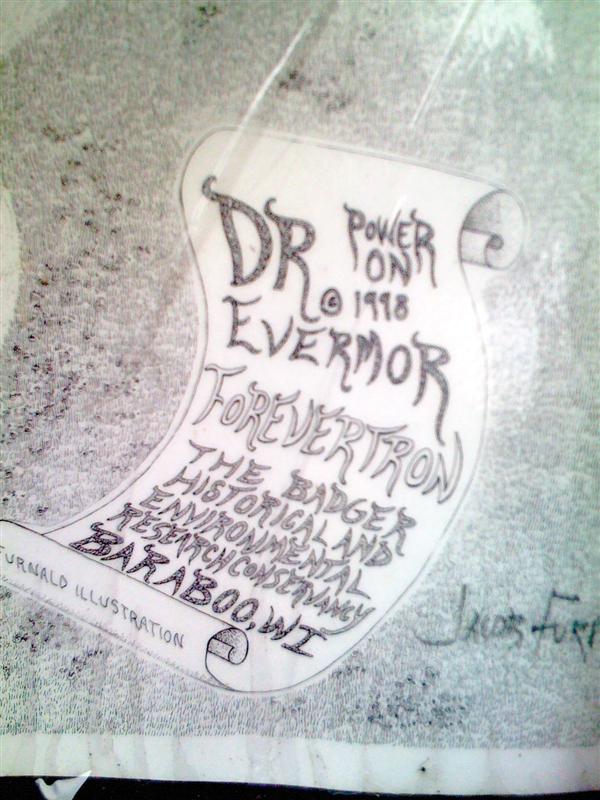 DR POWER
ON
© 1998
EVERMOR
FOREVERTRON
THE BADGER
HISTORICAL AND
ENVIRONMENTAL
RESEARCH CONSERVANCY
BARABOO, WI
FURNALD ILLUSTRATION